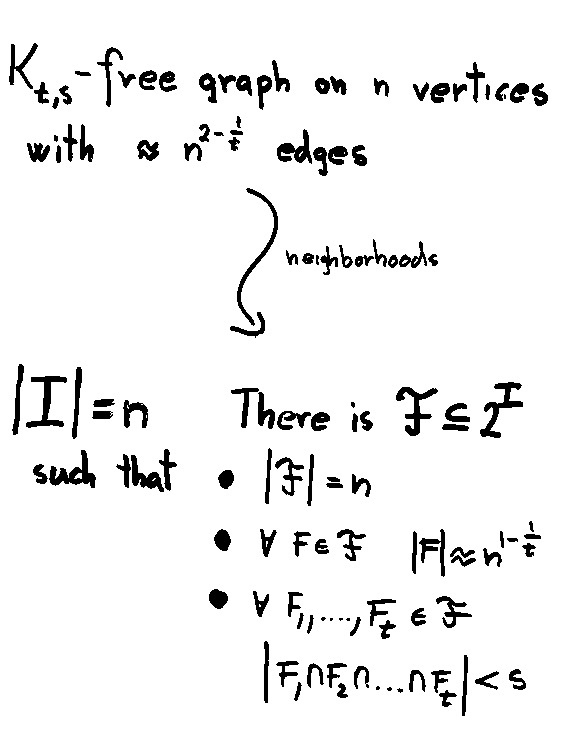 K_{t,s}-free graph on n vertices
with ≈ n^{2-\frac{1}{t}} edges
neighborhoods
|I|=n There is ℱ ⊆ 2^I
such that • |ℱ| = n
• ∀ F ∈ ℱ |F| ≈ n^{1-\frac{1}{t}}
• ∀ F_1,....,F_t ∈ ℱ
|F_1∩F_2∩...∩F_t| < s